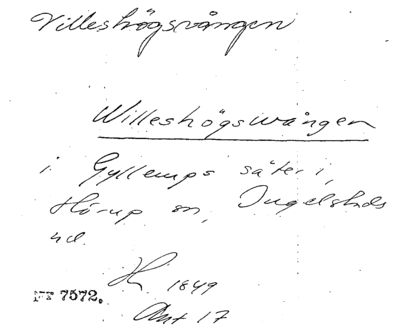 Villeshögsvången
Willeshögswången
i Gyllerups säteri,
Hörup sn, Ingelstads
hd.
H 1849
Akt 17
7572.